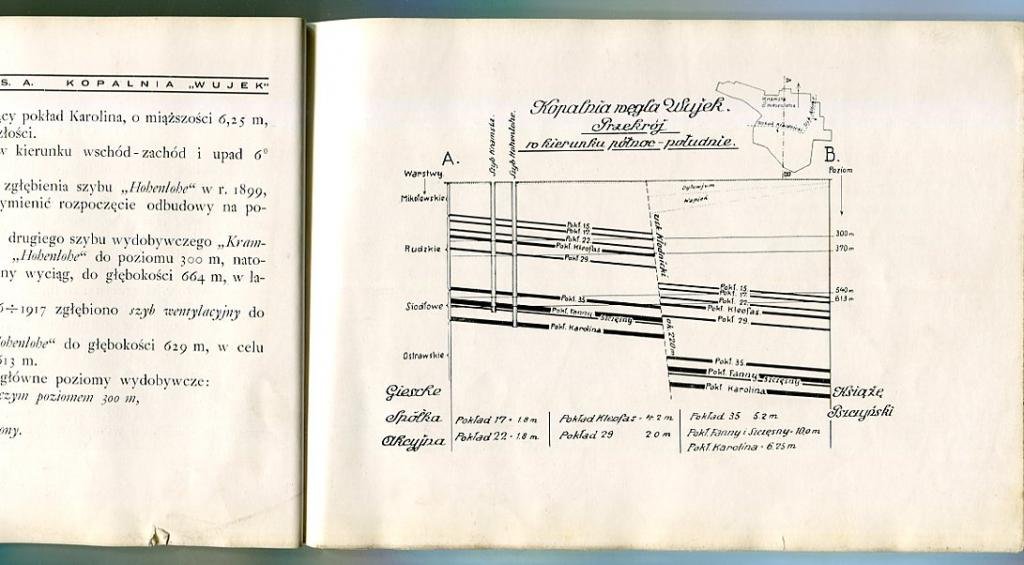 S. A. KOPALNIA „WUJEK“
cy pokład Karolina, o miąższości 6,25 m,
złości.
w kierunku wschód-zachód i upad 6°
zgłębienia szybu „Hohenlohe“ w r. 1899,
ymienić rozpoczęcie odbudowy na po-
drugiego szybu wydobywczego „Kram-
„Hohenlohe“ do poziomu 300 m, nato-
ny wyciąg, do głębokości 664 m, w ła-
6÷1917 zgłębiono szyb wentylacyjny do
ohenlohe“ do głębokości 629 m, w celu
513 m.
główne poziomy wydobywcze:
czym poziomem 300 m,
ony.
Kopalnia węgla Wujek.
Przekrój
w kierunku północ-południe.
A
B
A.
B.
Szyb Kramska.
Szyb Hohenlohe.
Warstwy
Poziom
Mikołowskie
Dyluwjum
Wapień
Pokł. 15
Pokł. 17
Pokł. 22
Pokł. Kleofas
Pokł 29
Rudzkie
300 m
370 m
usk. Kłodnicki
ok. 220 m
540 m
613 m
Pokł. 15
Pokł. 17
Pokł. 22
Pokł. Kleofas
Pokł 29.
Siodłowe
Pokł. 35
Pokł. Fanny
Szczęsny
Pokł. Karolina
Ostrawskie
Pokł. 35
Pokł. Fanny
Szczęsny
Pokł. Karolina
Giesche
Spółka
Akcyjna
Książę
Pszczyński
Pokład 17 - 1.8 m
Pokład 22 - 1.8 m
Pokład Kleofas - 4.2 m
Pokład 29 2.0 m
Pokład 35 5.2 m
Pokł. Fanny i Szczęsny - 10.0 m
Pokł. Karolina - 6.25 m